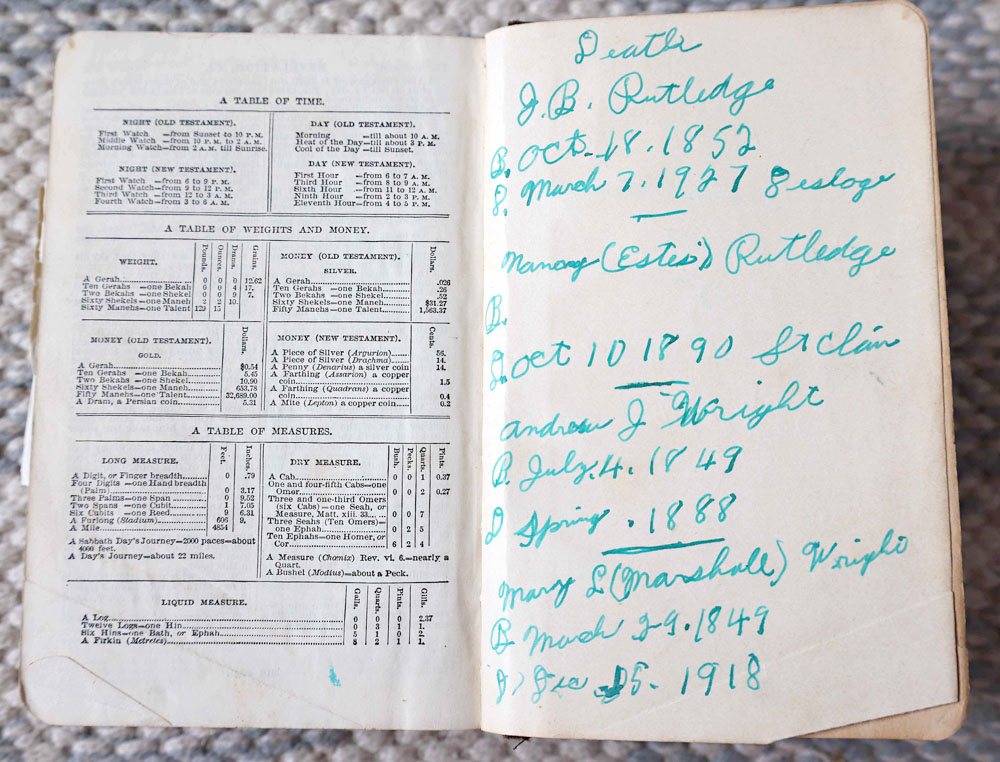 A TABLE OF TIME.
NIGHT (OLD TESTAMENT).
First Watch —from Sunset to 10 P. M.
Middle Watch —from 10 P. M. to 2 A. M.
Morning Watch—from 2 A.M. till Sunrise.
NIGHT (NEW TESTAMENT).
First Watch —from 6 to 9 P. M.
Second Watch—from 9 to 12 P. M.
Third Watch —from 12 to 3 A. M.
Fourth Watch—from 3 to 6 A. M.
DAY (OLD TESTAMENT).
Morning —till about 10 A. M.
Heat of the Day—till about 3 P. M.
Cool of the Day—till Sunset.
DAY (NEW TESTAMENT).
First Hour —from 6 to 7 A. M.
Third Hour —from 8 to 9 A. M.
Sixth Hour —from 11 to 12 A. M.
Ninth Hour —from 2 to 3 P. M.
Eleventh Hour—from 4 to 5 P. M.
A TABLE OF WEIGHTS AND MONEY.
WEIGHT. Pounds. Ounces. Drams. Grains.
A Gerah 0 0 0 12.62
Ten Gerahs —one Bekah 0 0 4 17.
Two Bekahs —one Shekel 0 0 9 7.
Sixty Shekels—one Maneh 2 2 10.
Sixty Manehs—one Talent 129 15
MONEY (OLD TESTAMENT). Dollars.
SILVER.
A Gerah .026
Ten Gerahs —one Bekah .26
Two Bekahs —one Shekel .52
Sixty Shekels—one Maneh $31.27
Fifty Manehs—one Talent 1,563.37
MONEY (OLD TESTAMENT). Dollars.
GOLD.
A Gerah $0.54
Ten Gerahs —one Bekah 5.45
Two Bekahs —one Shekel 10.90
Sixty Shekels—one Maneh 653.78
Fifty Manehs—one Talent 32,689.00
A Dram, a Persian coin 5.31
MONEY (NEW TESTAMENT). Cents.
A Piece of Silver (Argurion) 56.
A Piece of Silver (Drachma) 14.
A Penny (Denarius) a silver coin 14.
A Farthing (Assarion) a copper
coin 1.5
A Farthing (Quadrans) a copper
coin 0.4
A Mite (Lepton) a copper coin 0.2
A TABLE OF MEASURES.
LONG MEASURE. Feet. Inches.
A Digit, or Finger breadth 0 .79
Four Digits —one Hand breadth
(Palm) 0 3.17
Three Palms—one Span 0 9.52
Two Spans —one Cubit 1 7.05
Six Cubits —one Reed 9 6.31
A Furlong (Stadium) 606 9.
A Mile 4854
A Sabbath Day's Journey—2000 paces—about
4000 feet.
A Day's Journey—about 22 miles.
DRY MEASURE. Bush. Pecks. Quarts. Pints.
A Cab 0 0 1 0.37
One and four-fifth Cabs—one
Omer 0 0 2 0.27
Three and one-third Omers
(six Cabs) — one Seah, or
Measure, Matt. xiii. 33 0 0 7
Three Seahs (Ten Omers)—
one Ephah 0 2 5
Ten Ephahs—one Homer, or
Cor 6 2 4
A Measure (Chœnix) Rev. vi. 6.—nearly a
Quart.
A Bushel (Modius)—about a Peck.
LIQUID MEASURE. Galls. Quarts. Pints. Gills.
A Log 0 0 0 2.37
Twelve Logs—one Hin 0 3 1 1.
Six Hins—one Bath, or Ephah 5 1 0 2.
A Firkin (Metretes) 8 2 1 1.
Death
J. B. Rutledge
B. Oct. 18. 1852
D. March 7. 1927
(Estes) Rutledge
B.
D. Oct 10 1890 St Clair
Andrew J Wright
B. July. 4. 1849
D Spring . 1888
Mary L (Marshall) Wright
B March 29. 1849
D Dec 15. 1918